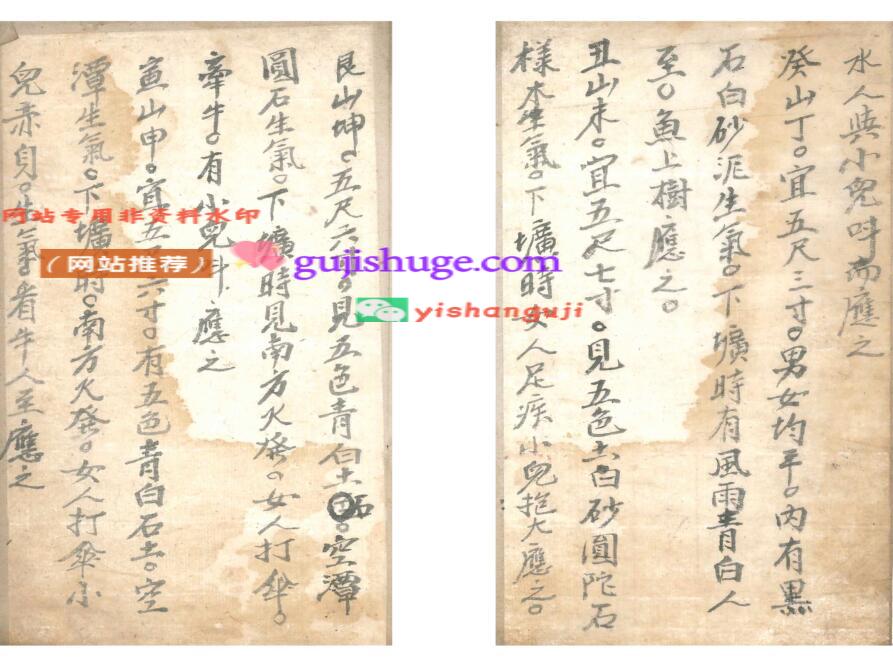 水人與小兒呌而應之
癸山丁。宜五尺三寸。男女均平。內有黑
石白砂泥生氣。下壙時有風雨青白人
至。魚上樹應之。
丑山未。宜五尺七寸。見五色土白砂圓陀石
樣木生氣。下壙時女人足疾小兒抱犬應之。
艮山坤。五尺六寸。見五色青白土石。空潭
圓石生氣。下壙時見南方火發。女人打傘。
牽牛。有小兒呌應之
山申。宜五尺六寸。有五色青白石土。空
潭生氣。下壙時。南方火發。女人打傘小
兒赤身。生氣看牛人至應之
网站专用非资料水印
（网站推荐）
gujishuge.com
yishanguji